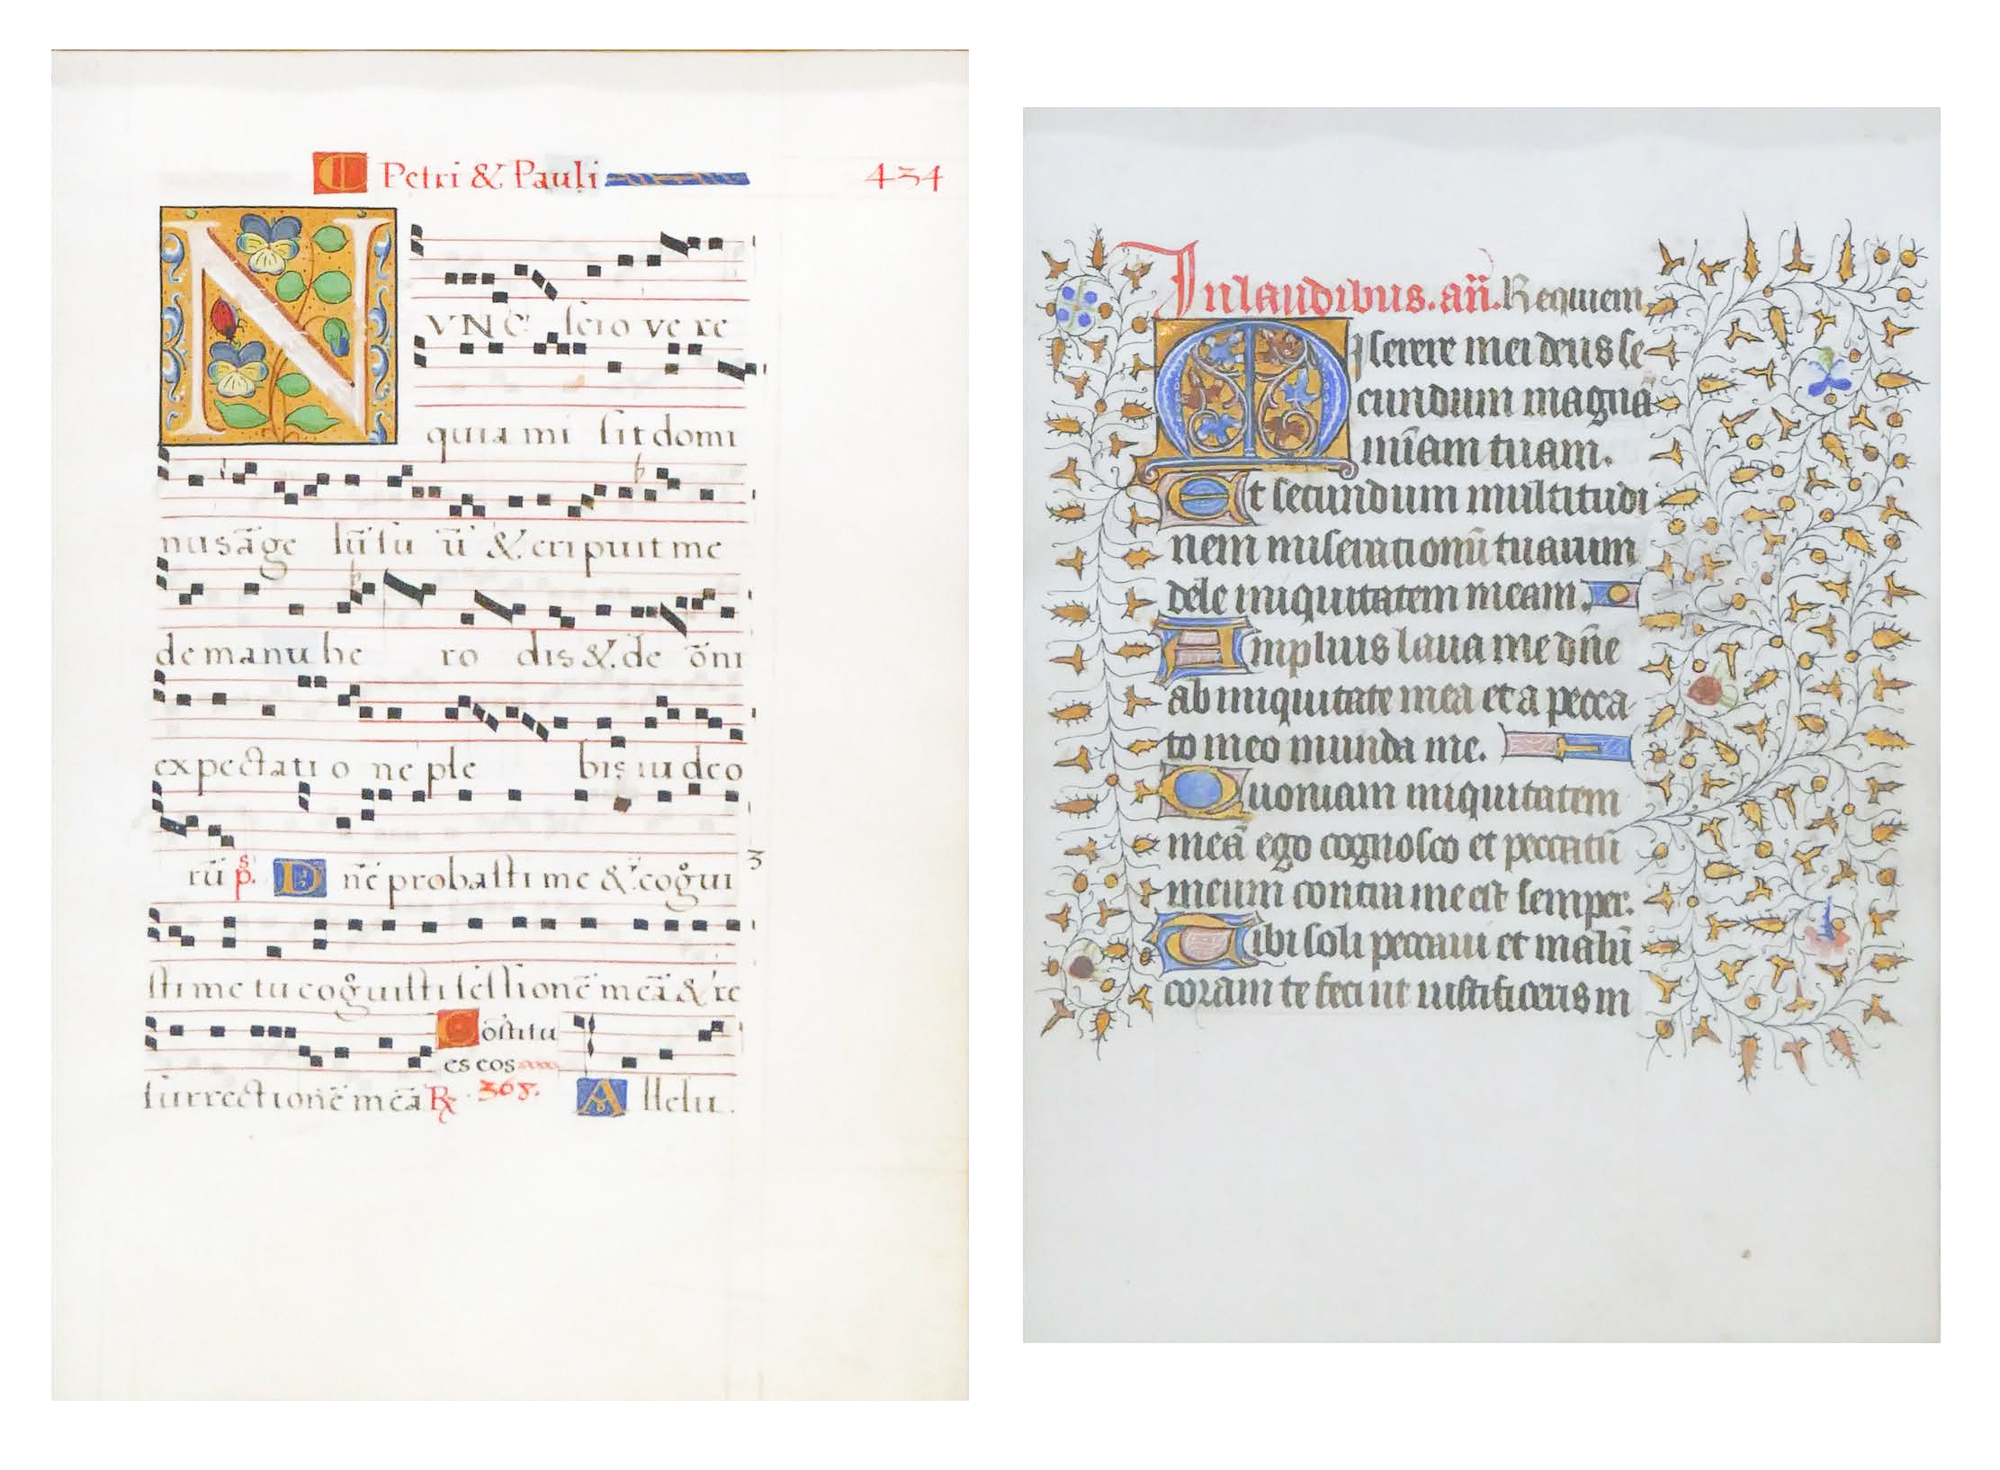 C Petri & Pauli 434
NVNC scio vere
quia mi sit domi
nus āge lū suū & eripuit me
de manu he ro dis & de ōni
expectati o ne ple bis iudeo
rū ps. Dn̄e probasti me & cogui
sti me tu coguisti sessionē meā & re
surrectionē meā ℞ 368. Cōstitu
es eos
Allelu.
In laudibus. añ. Requiem
Miserere mei deus se
cundum magnā
mīam tuam.
Et secundum multitudi
nem miserationū tuarum
dele iniquitatem meam.
Amplius laua me dn̄e
ab iniquitate mea et a pecca
to meo munda me.
Quoniam iniquitatem
meā ego cognosco et peccatū
meum contra me est semper.
Tibi soli peccaui et malū
coram te feci ut iustificeris in